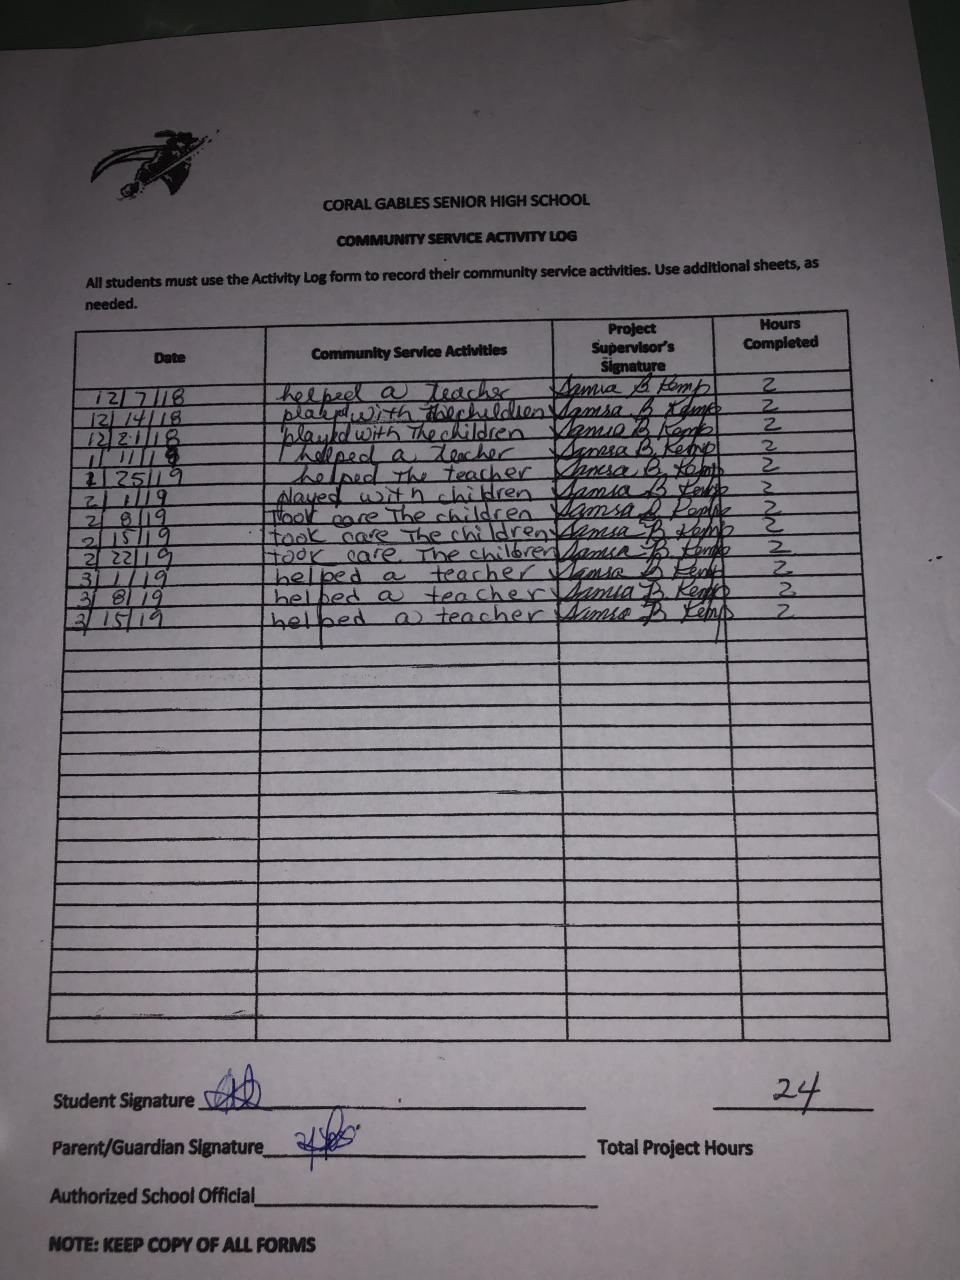 CORAL GABLES SENIOR HIGH SCHOOL
COMMUNITY SERVICE ACTIVITY LOG
All students must use the Activity Log form to record their community service activities. Use additional sheets, as
needed.
Date Community Service Activities Project Supervisor's Signature Hours Completed
12/7/18 helped a teacher Samsa B Kemp 2
12/14/18 played with the children Samsa B Kemp 2
12/21/18 played with The children Samsa B Kemp 2
1/11/19 helped a teacher Samsa B. Kemp 2
1/25/19 helped The teacher Samsa B. Kemp 2
2/1/19 played with children Samsa B Kemp 2
2/8/19 took care The children Samsa B Kemp 2
2/15/19 took care The children Samsa B Kemp 2
2/22/19 took care The children Samsa B Kemp 2
3/1/19 helped a teacher Samsa B Kemp 2
3/8/19 helped a teacher Samsa B Kemp 2
3/15/19 helped a teacher Samsa B Kemp 2
Student Signature 24
Parent/Guardian Signature Total Project Hours
Authorized School Official
NOTE: KEEP COPY OF ALL FORMS